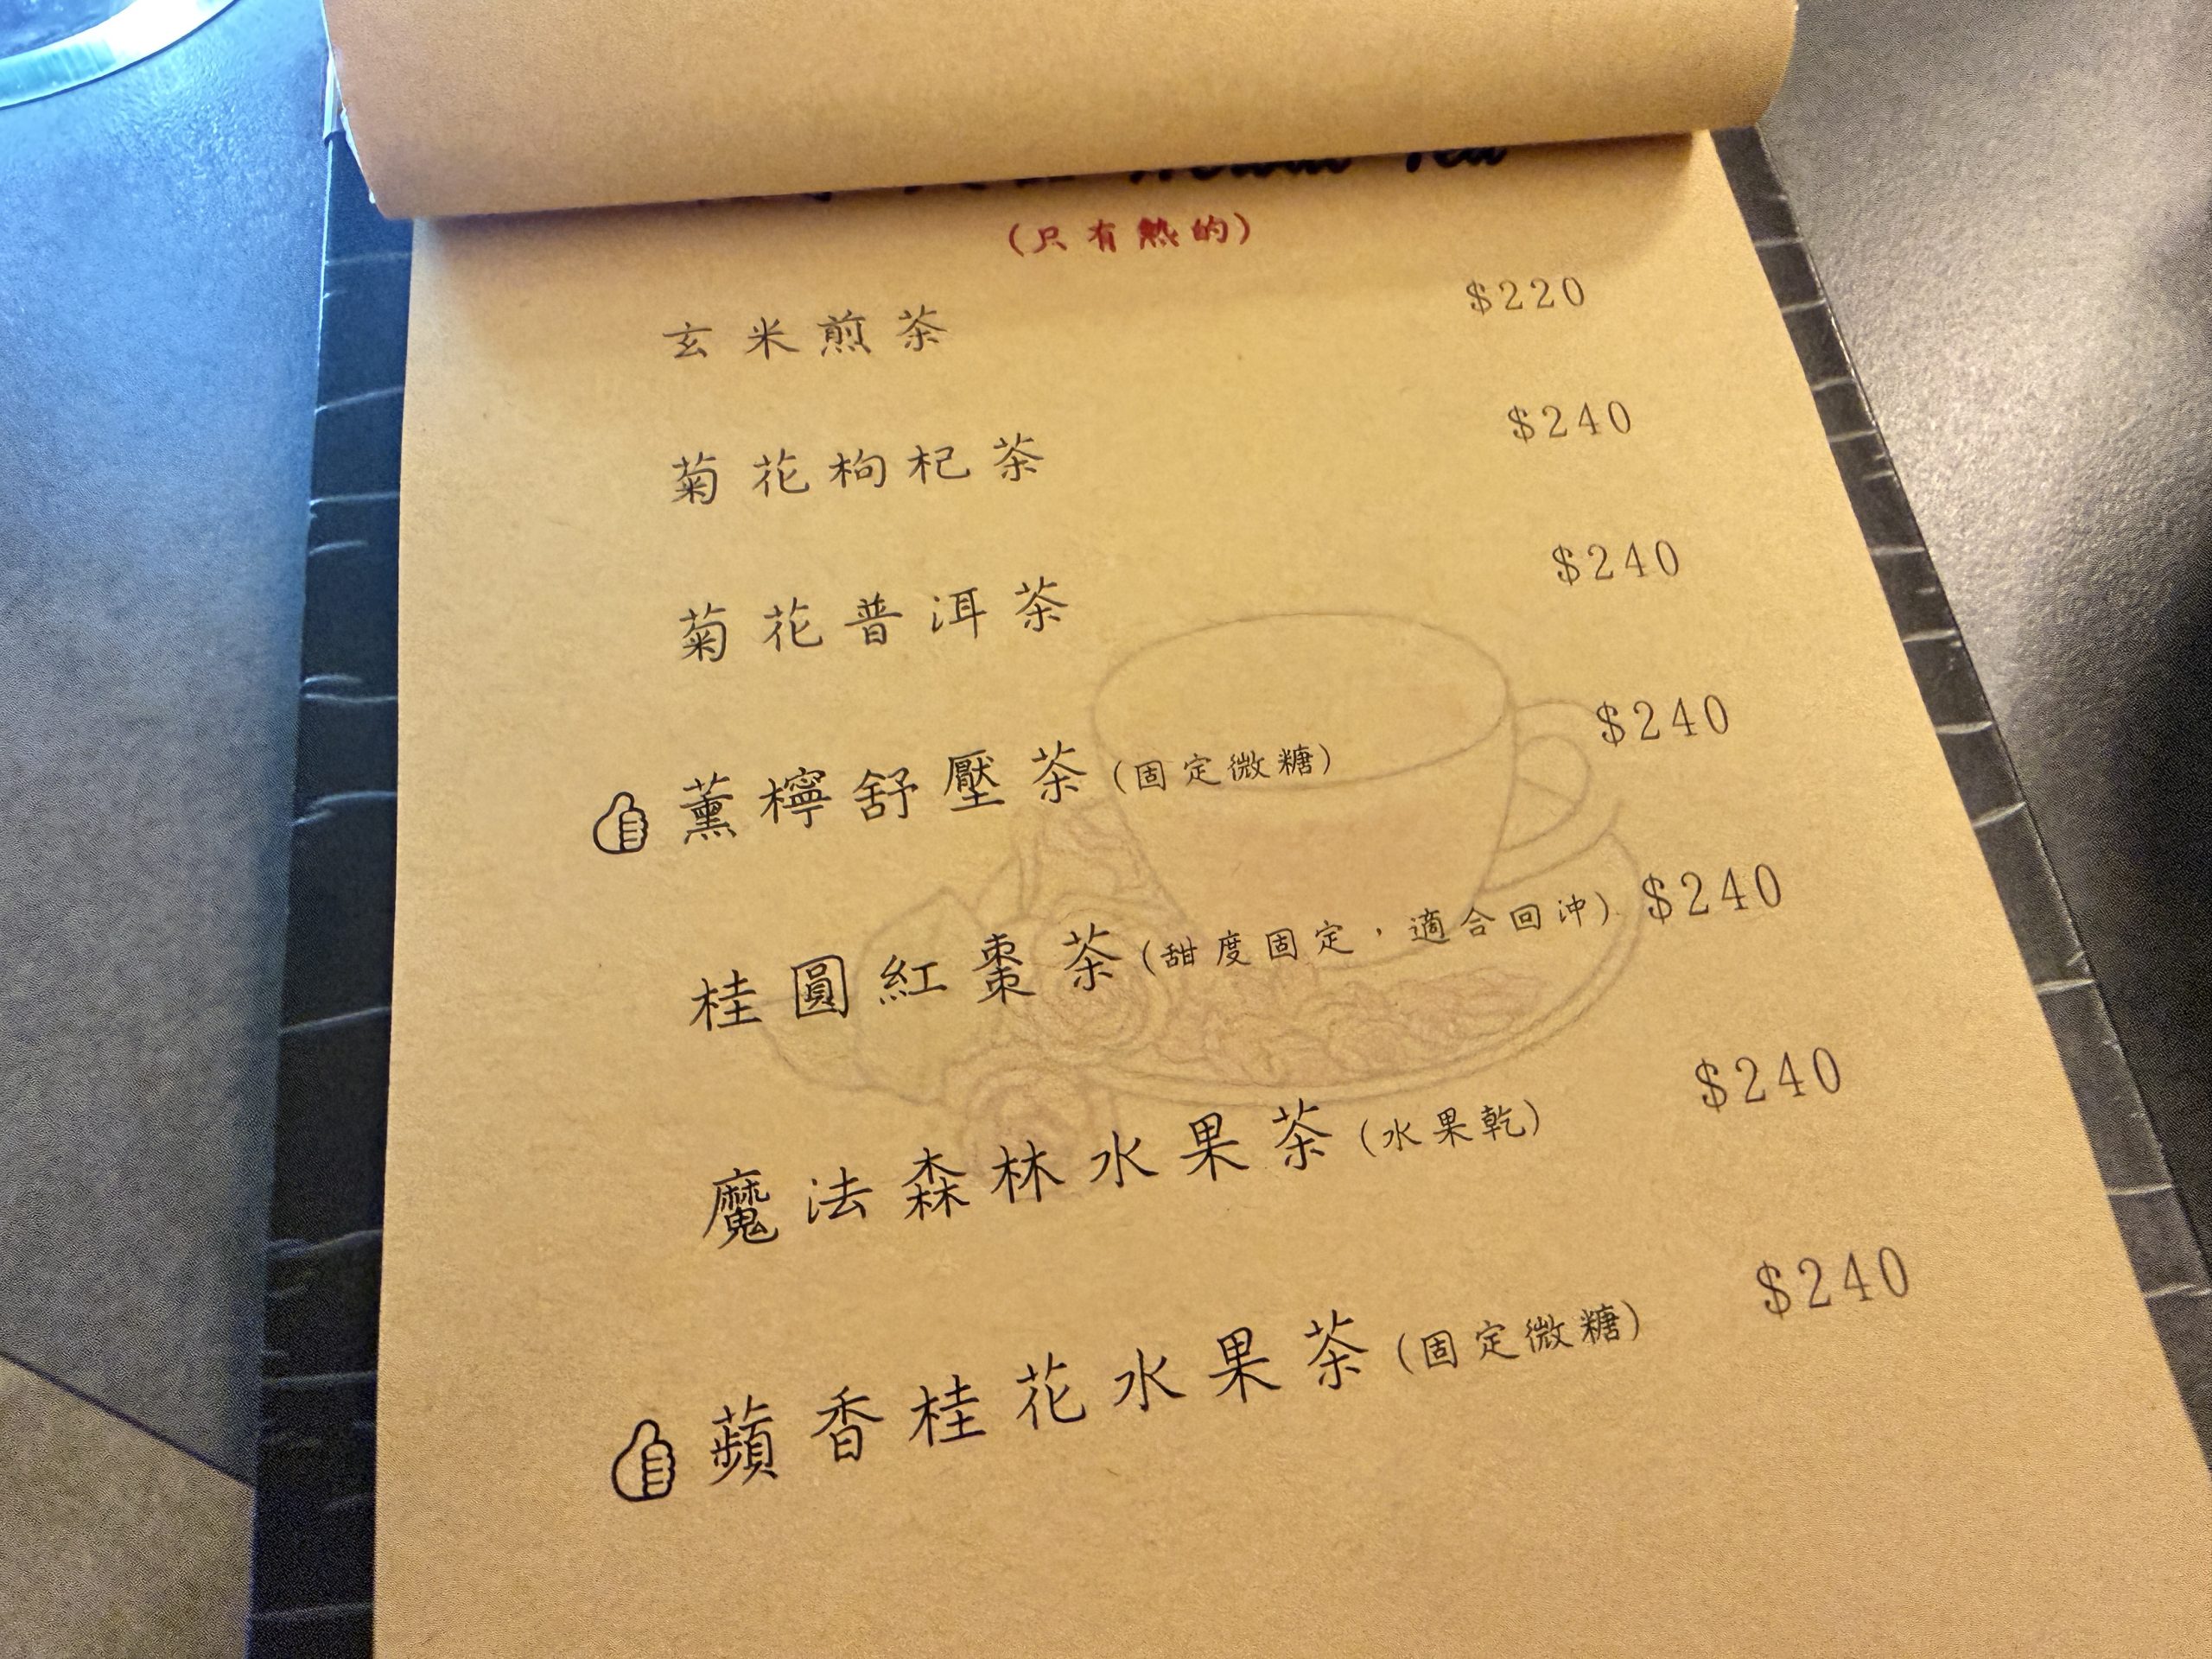 Tea
(只有熱的)
玄米煎茶 $220
菊花枸杞茶 $240
菊花普洱茶 $240
薰檸舒壓茶(固定微糖) $240
桂圓紅棗茶(甜度固定,適合回沖) $240
魔法森林水果茶(水果乾) $240
蘋香桂花水果茶(固定微糖) $240